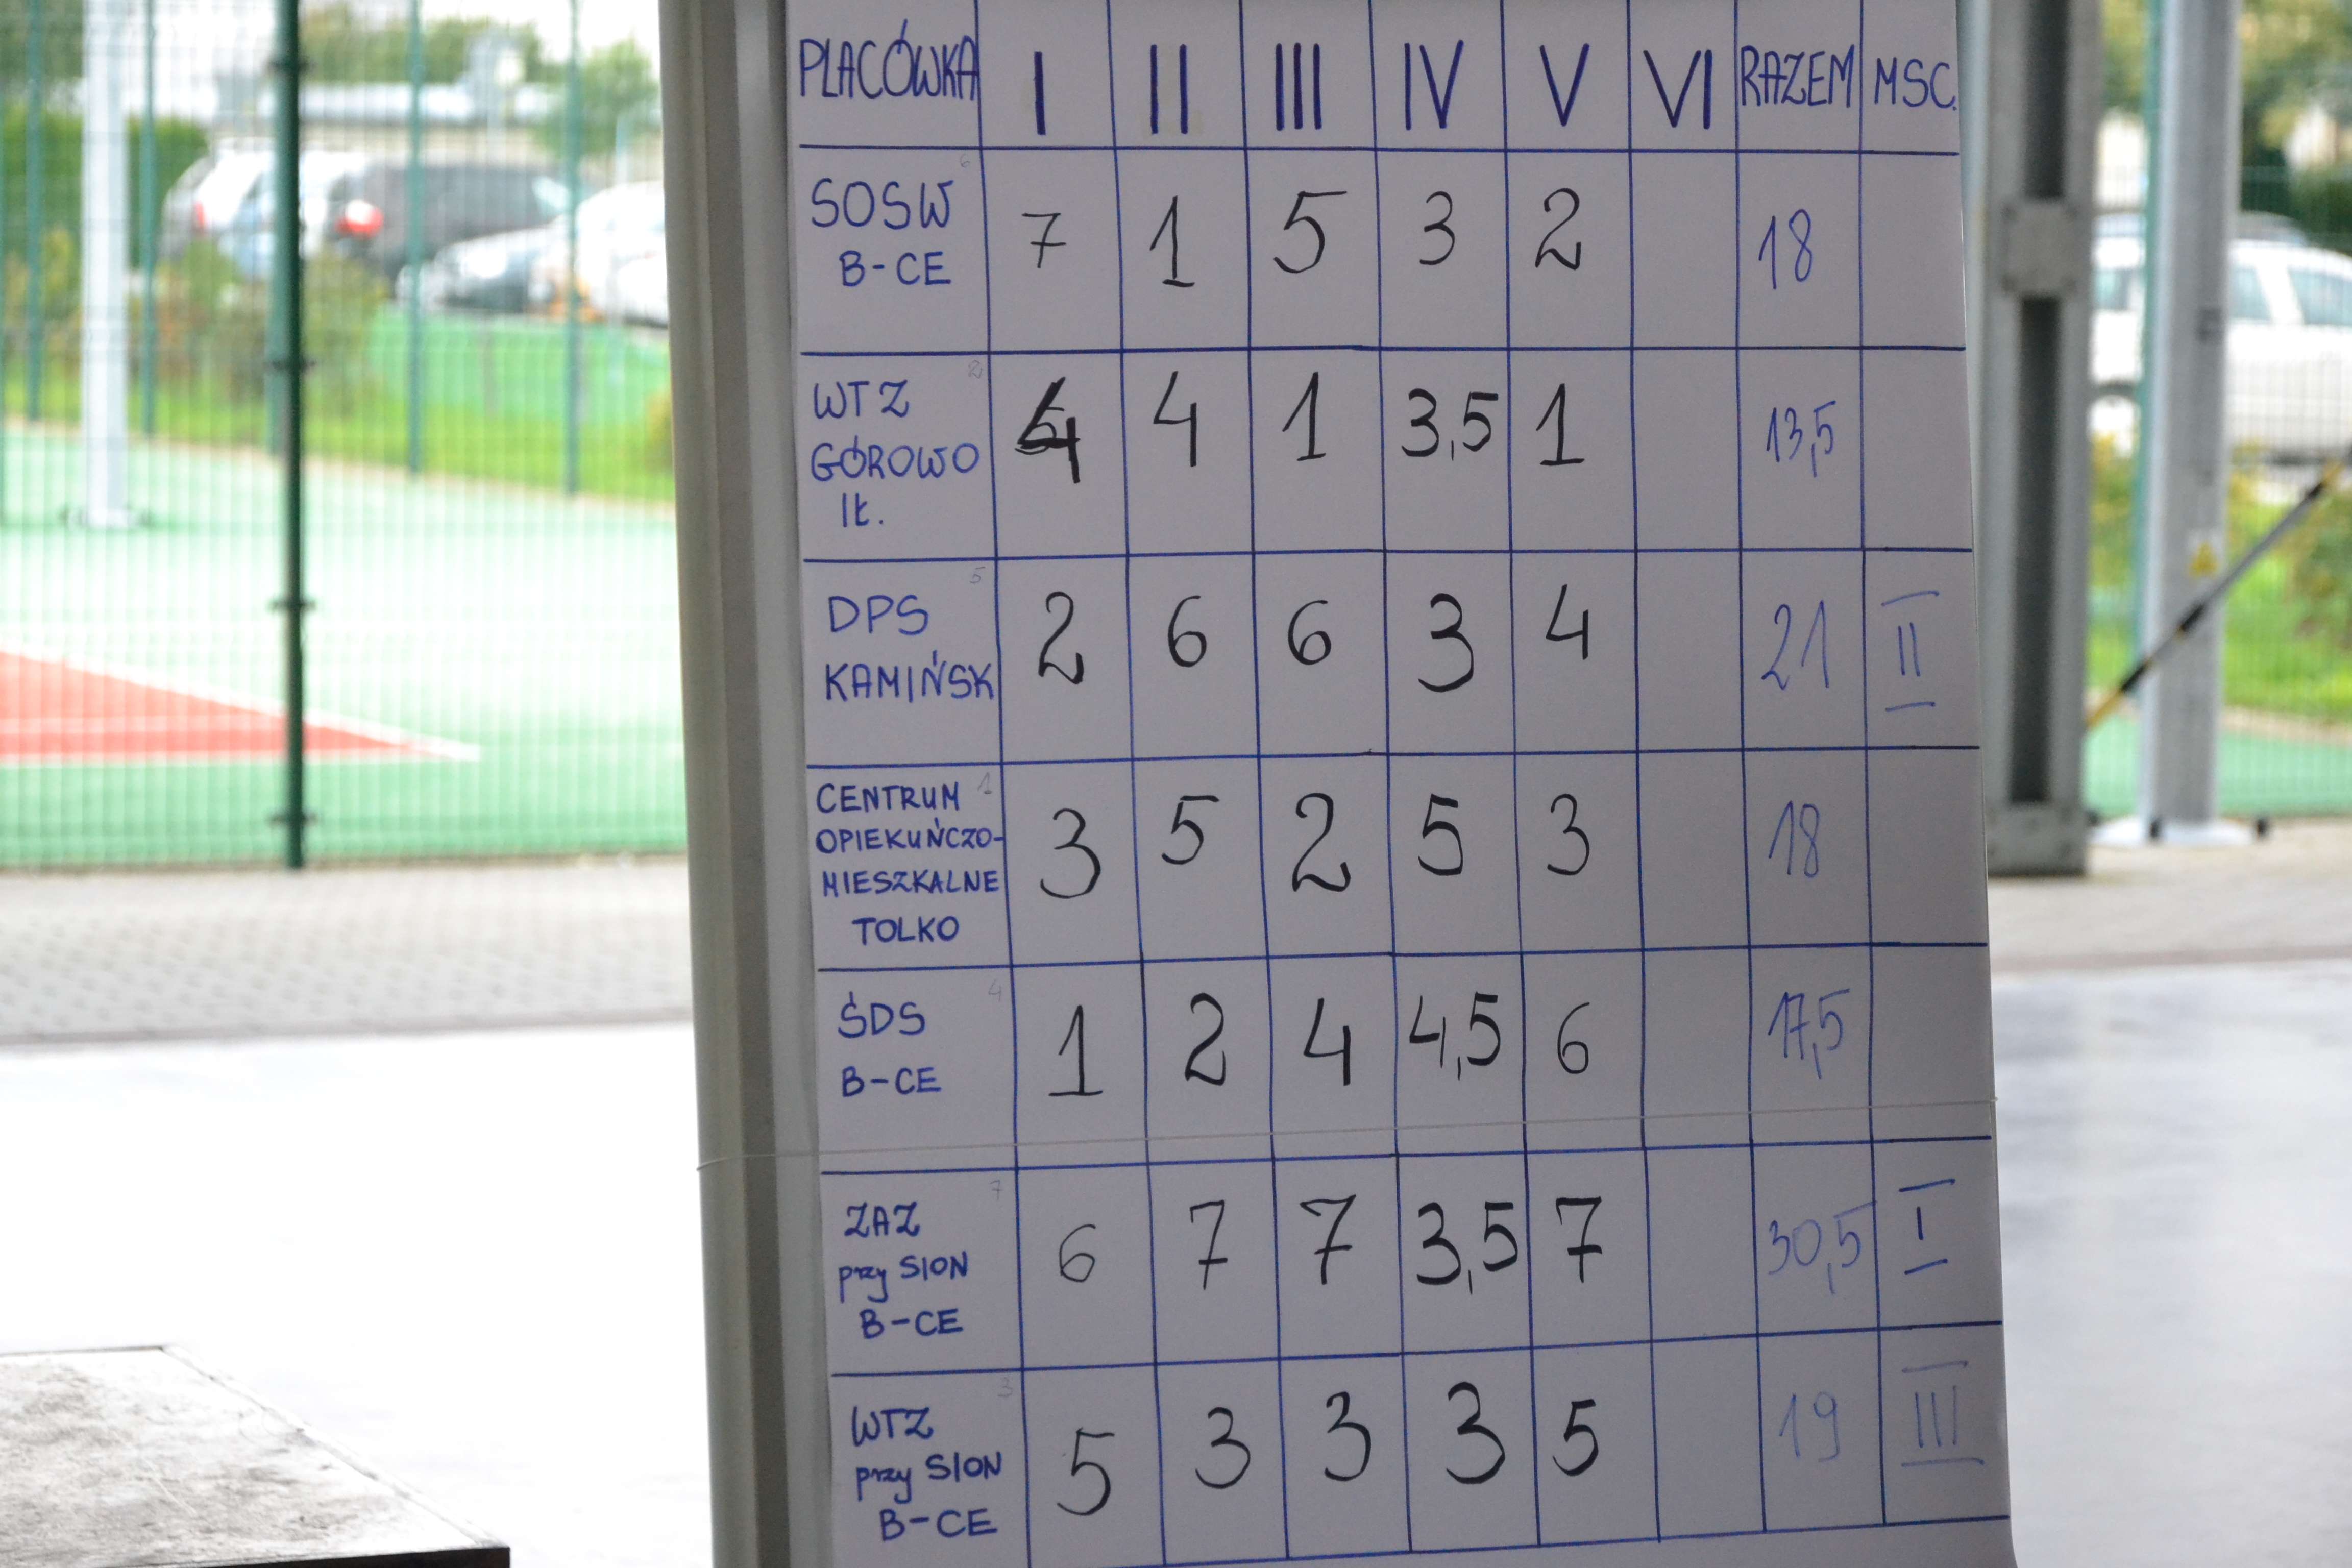 PLACÓWKA I II III IV V VI RAZEM MSC.
SOSW B-CE 6 7 1 5 3 2 18
WTZ GÓROWO IŁ. 2 4 4 1 3,5 1 13,5
DPS KAMIŃSK 5 2 6 6 3 4 21 II
CENTRUM OPIEKUŃCZO-MIESZKALNE TOLKO 1 3 5 2 5 3 18
ŚDS B-CE 4 1 2 4 4,5 6 17,5
ZAZ przy SION B-CE 7 6 7 7 3,5 7 30,5 I
WTZ przy SION B-CE 3 5 3 3 3 5 19 III